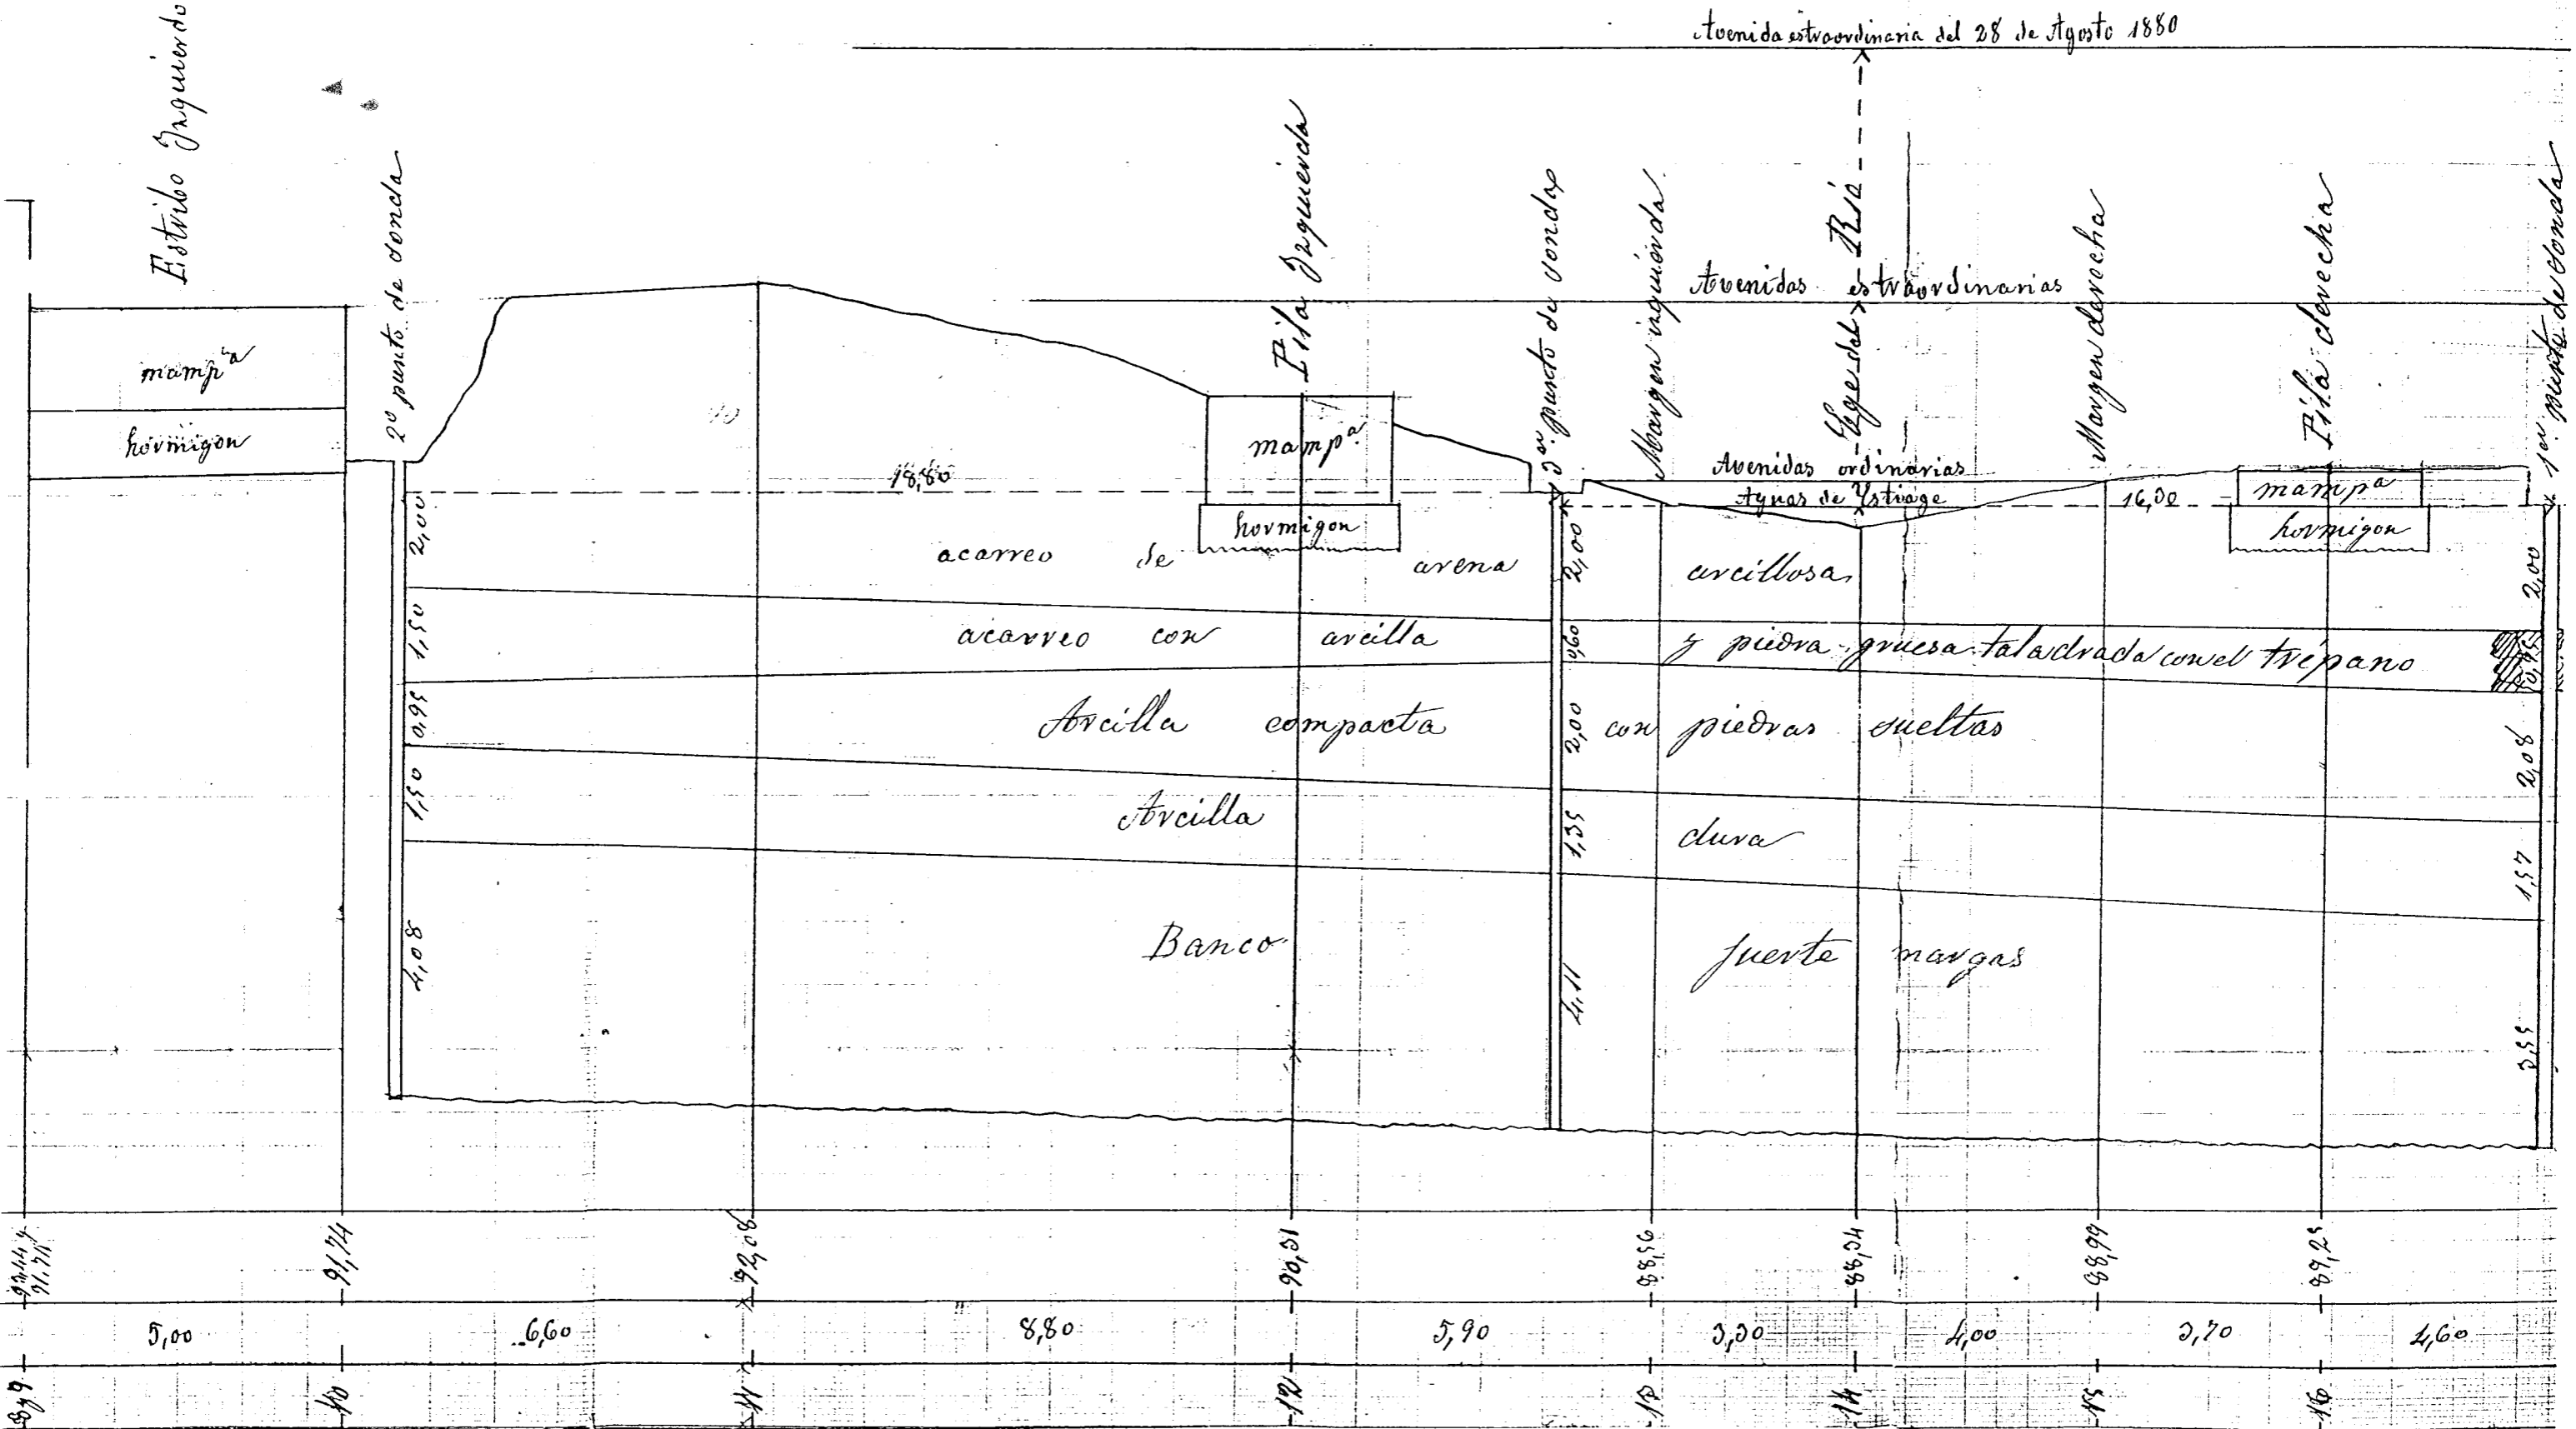 Avenida estraordinaria del 28 de Agosto 1880
Estribo Izquierdo
2º punto de sonda
Pila Izquierda
3er punto de sonda
Margen izquierda
Ege del Rio
Margen derecha
Pila derecha
1er punto de sonda
Avenidas estraordinarias
mampª
hormigon
mampª
hormigon
Avenidas ordinarias
Aguas de Ystiage
mampª
hormigon
18,80
16,30
acarreo de arena arcillosa
acarreo con arcilla y piedra gruesa taladrada con el trépano
Arcilla compacta con piedras sueltas
Arcilla dura
Banco fuerte margas
2,00
1,50
0,95
1,50
4,08
2,00
0,60
2,00
1,35
4,11
2,00
2,08
1,57
3,55
91,74
91,74
92,08
90,31
88,56
88,34
88,99
89,25
5,00
6,60
8,80
5,90
3,30
4,00
3,70
4,60
8y9
10
11
12
13
14
15
16